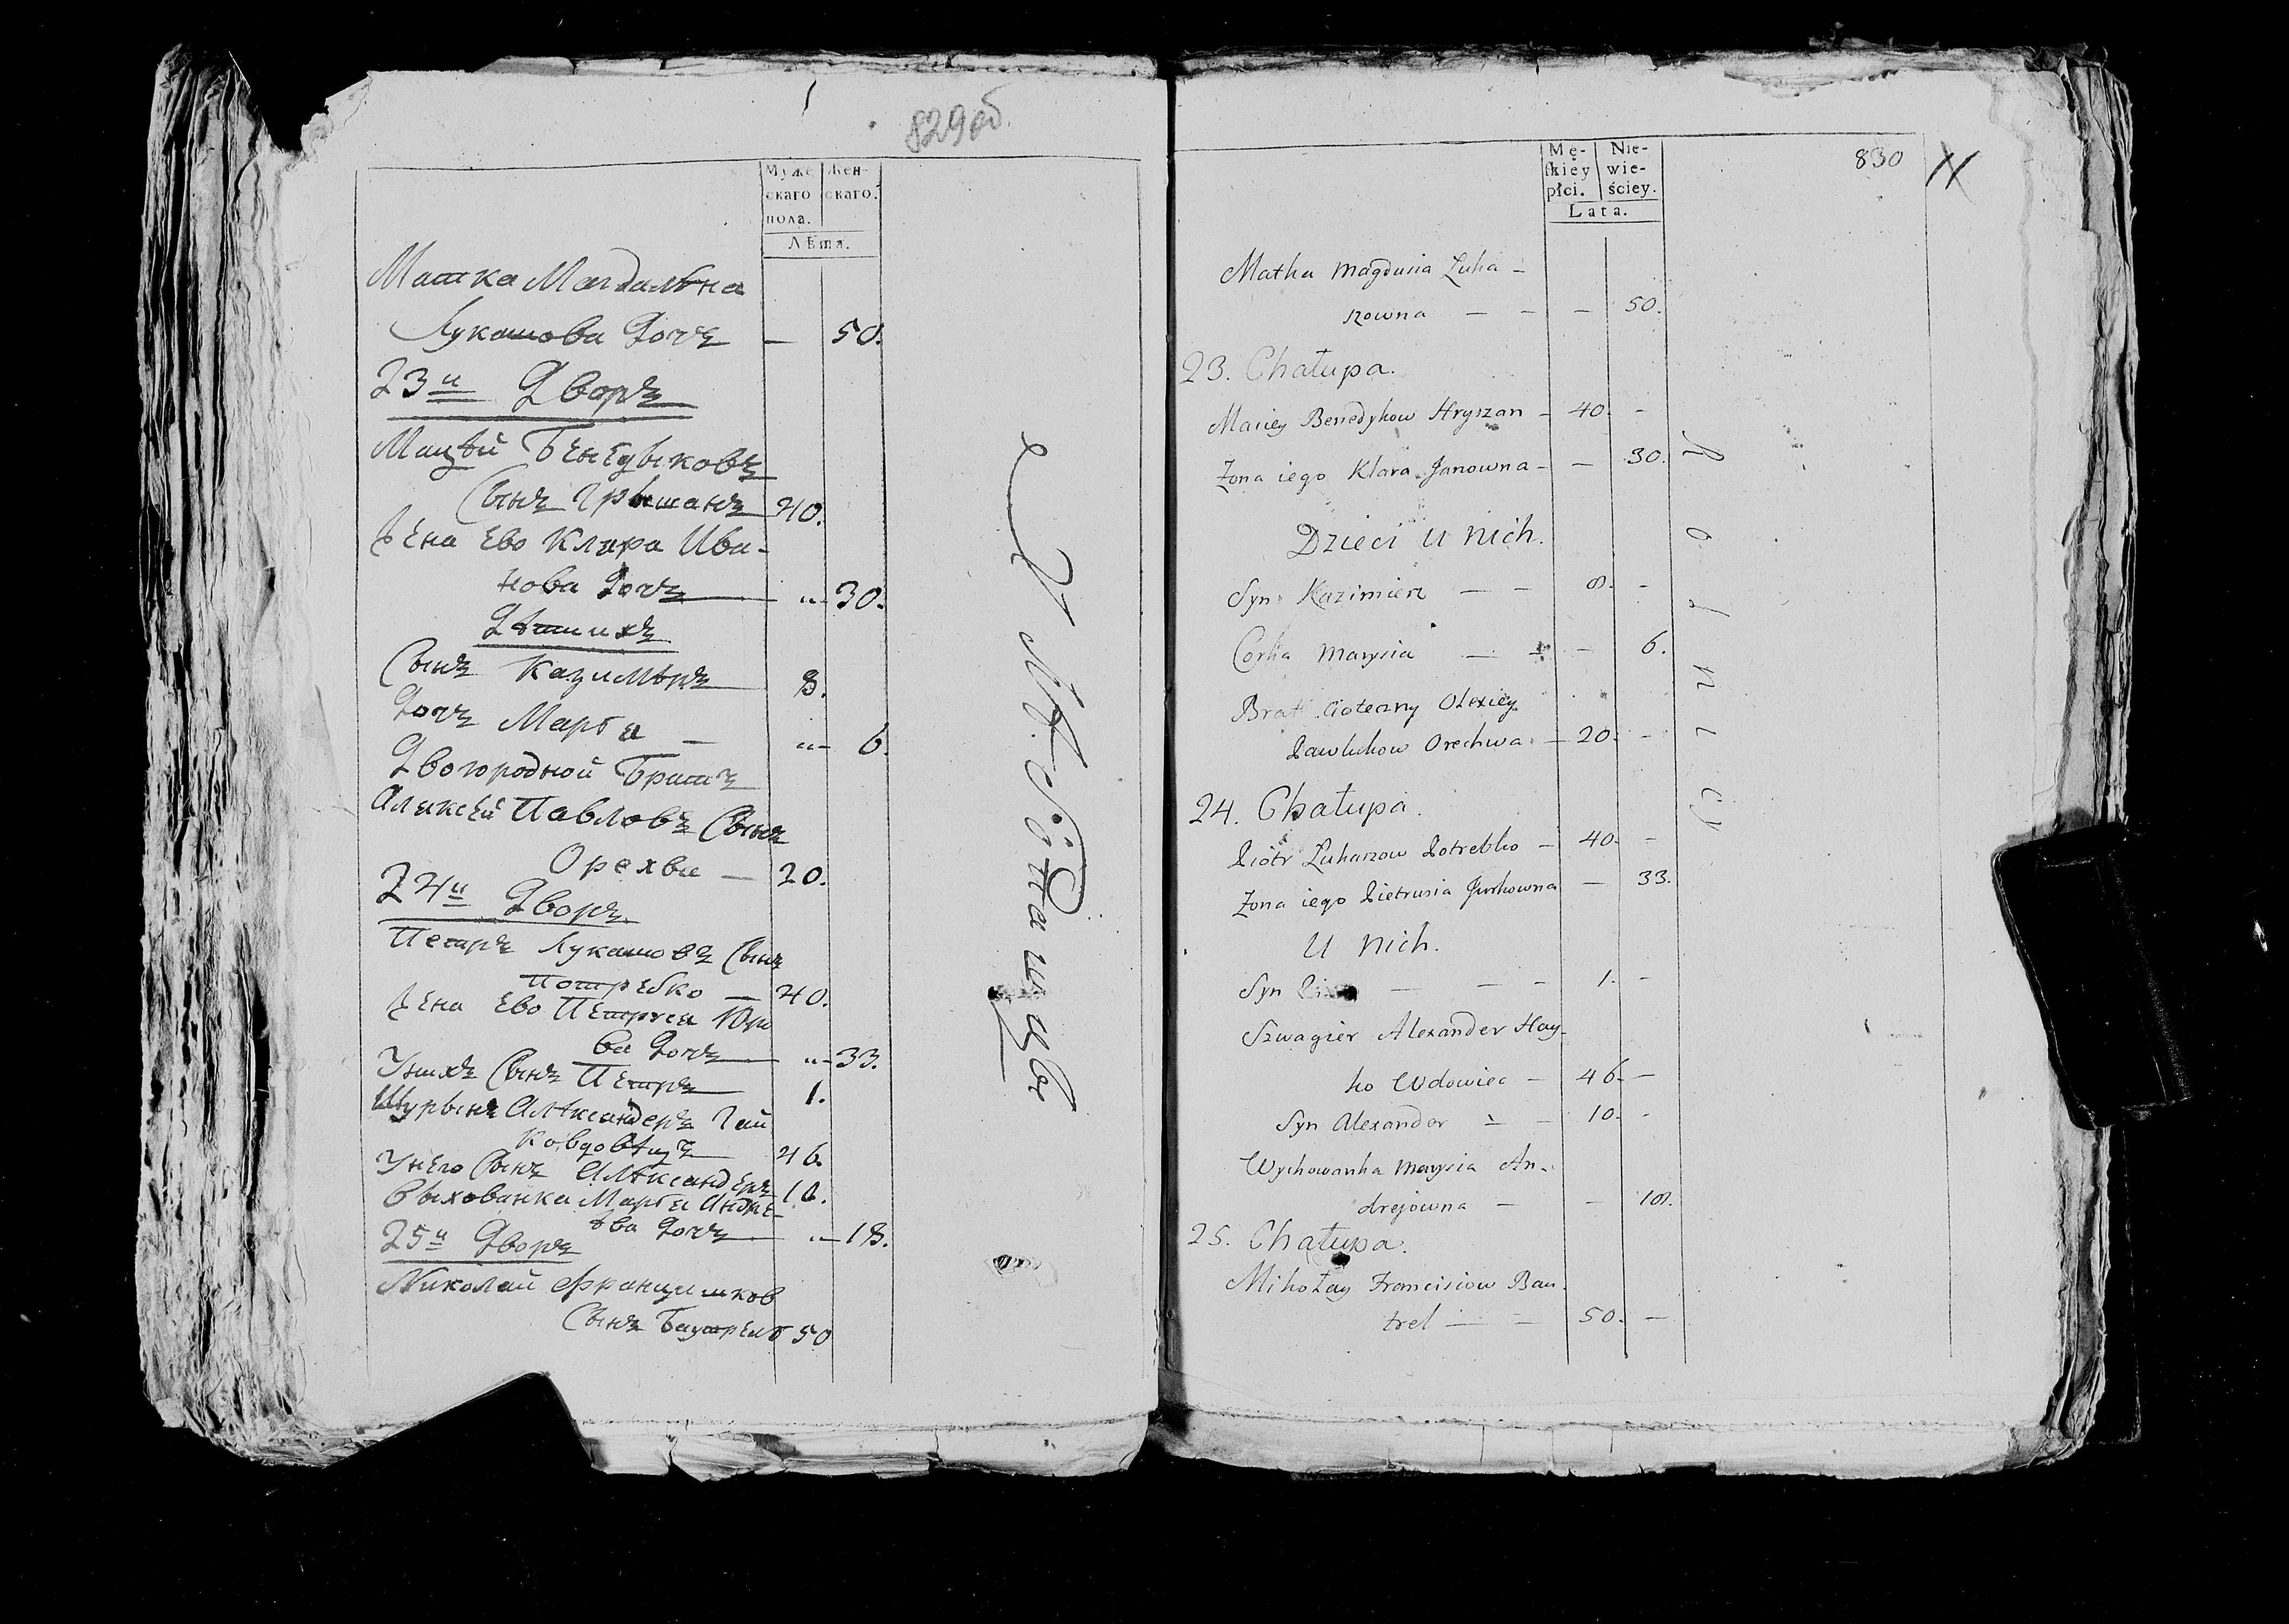 829об.
Муже
скаго
пола.
Жен-
скаго.
Лѣта.
Матка Магдалѣна
Лукашова Дочъ — 50.
23й Дворъ
Мацѣй Бенедыковъ
Сынъ Грышанъ 40.
Жена Ево Клара Ива-
нова Дочъ „— 30.
Дѣтиихъ
Сынъ Казимѣръ 8.
Дочъ Марья — „— 6.
Двоюродной Братъ
Алексей Павловъ Сынъ
Орехва — 20.
24й Дворъ
Петръ Лукашовъ Сынъ
Потребко — 40.
Жена Ево Петруся Юрь
ва Дочъ „— 33.
Унихъ Сынъ Петръ 1.
Шурынъ Алѣксандеръ Гай
ко вдовѣцъ 46.
Унего Сынъ Алѣксандеръ 10.
Выхованка Марья Андре-
ѣва Дочъ „— 18.
25й Дворъ
Николай Францишков
Сынъ Баутрель 50
830
11
Mę-
ſkiey
płci.
Nie-
wie-
ściey.
Lata.
Matka Magdusia Łuka-
szowna — — — 50.
23. Chałupa.
Maciey Benedykow Hryszan - 40. -
Żona iego Klara Janowna - — 30.
Dzieci u nich.
Syn Kazimierz — - 8. -
Corka Marysia — - - 6.
Brat Cioteczny Olexiey
Pawlukow Orechwa - 20. -
24. Chałupa.
Piotr Łukaszow Potrebko - 40. -
Żona iego Pietrusia Jurkowna — 33.
U nich.
Syn — — - 1. -
Szwagier Alexander Hay-
ko Wdowiec - 46. —
Syn Alexander - - 10. -
Wychowanka Marysia An-
drejowna — - 18.
25. Chałupa.
Mikołay Franciszow Bau
trel — - 50. —